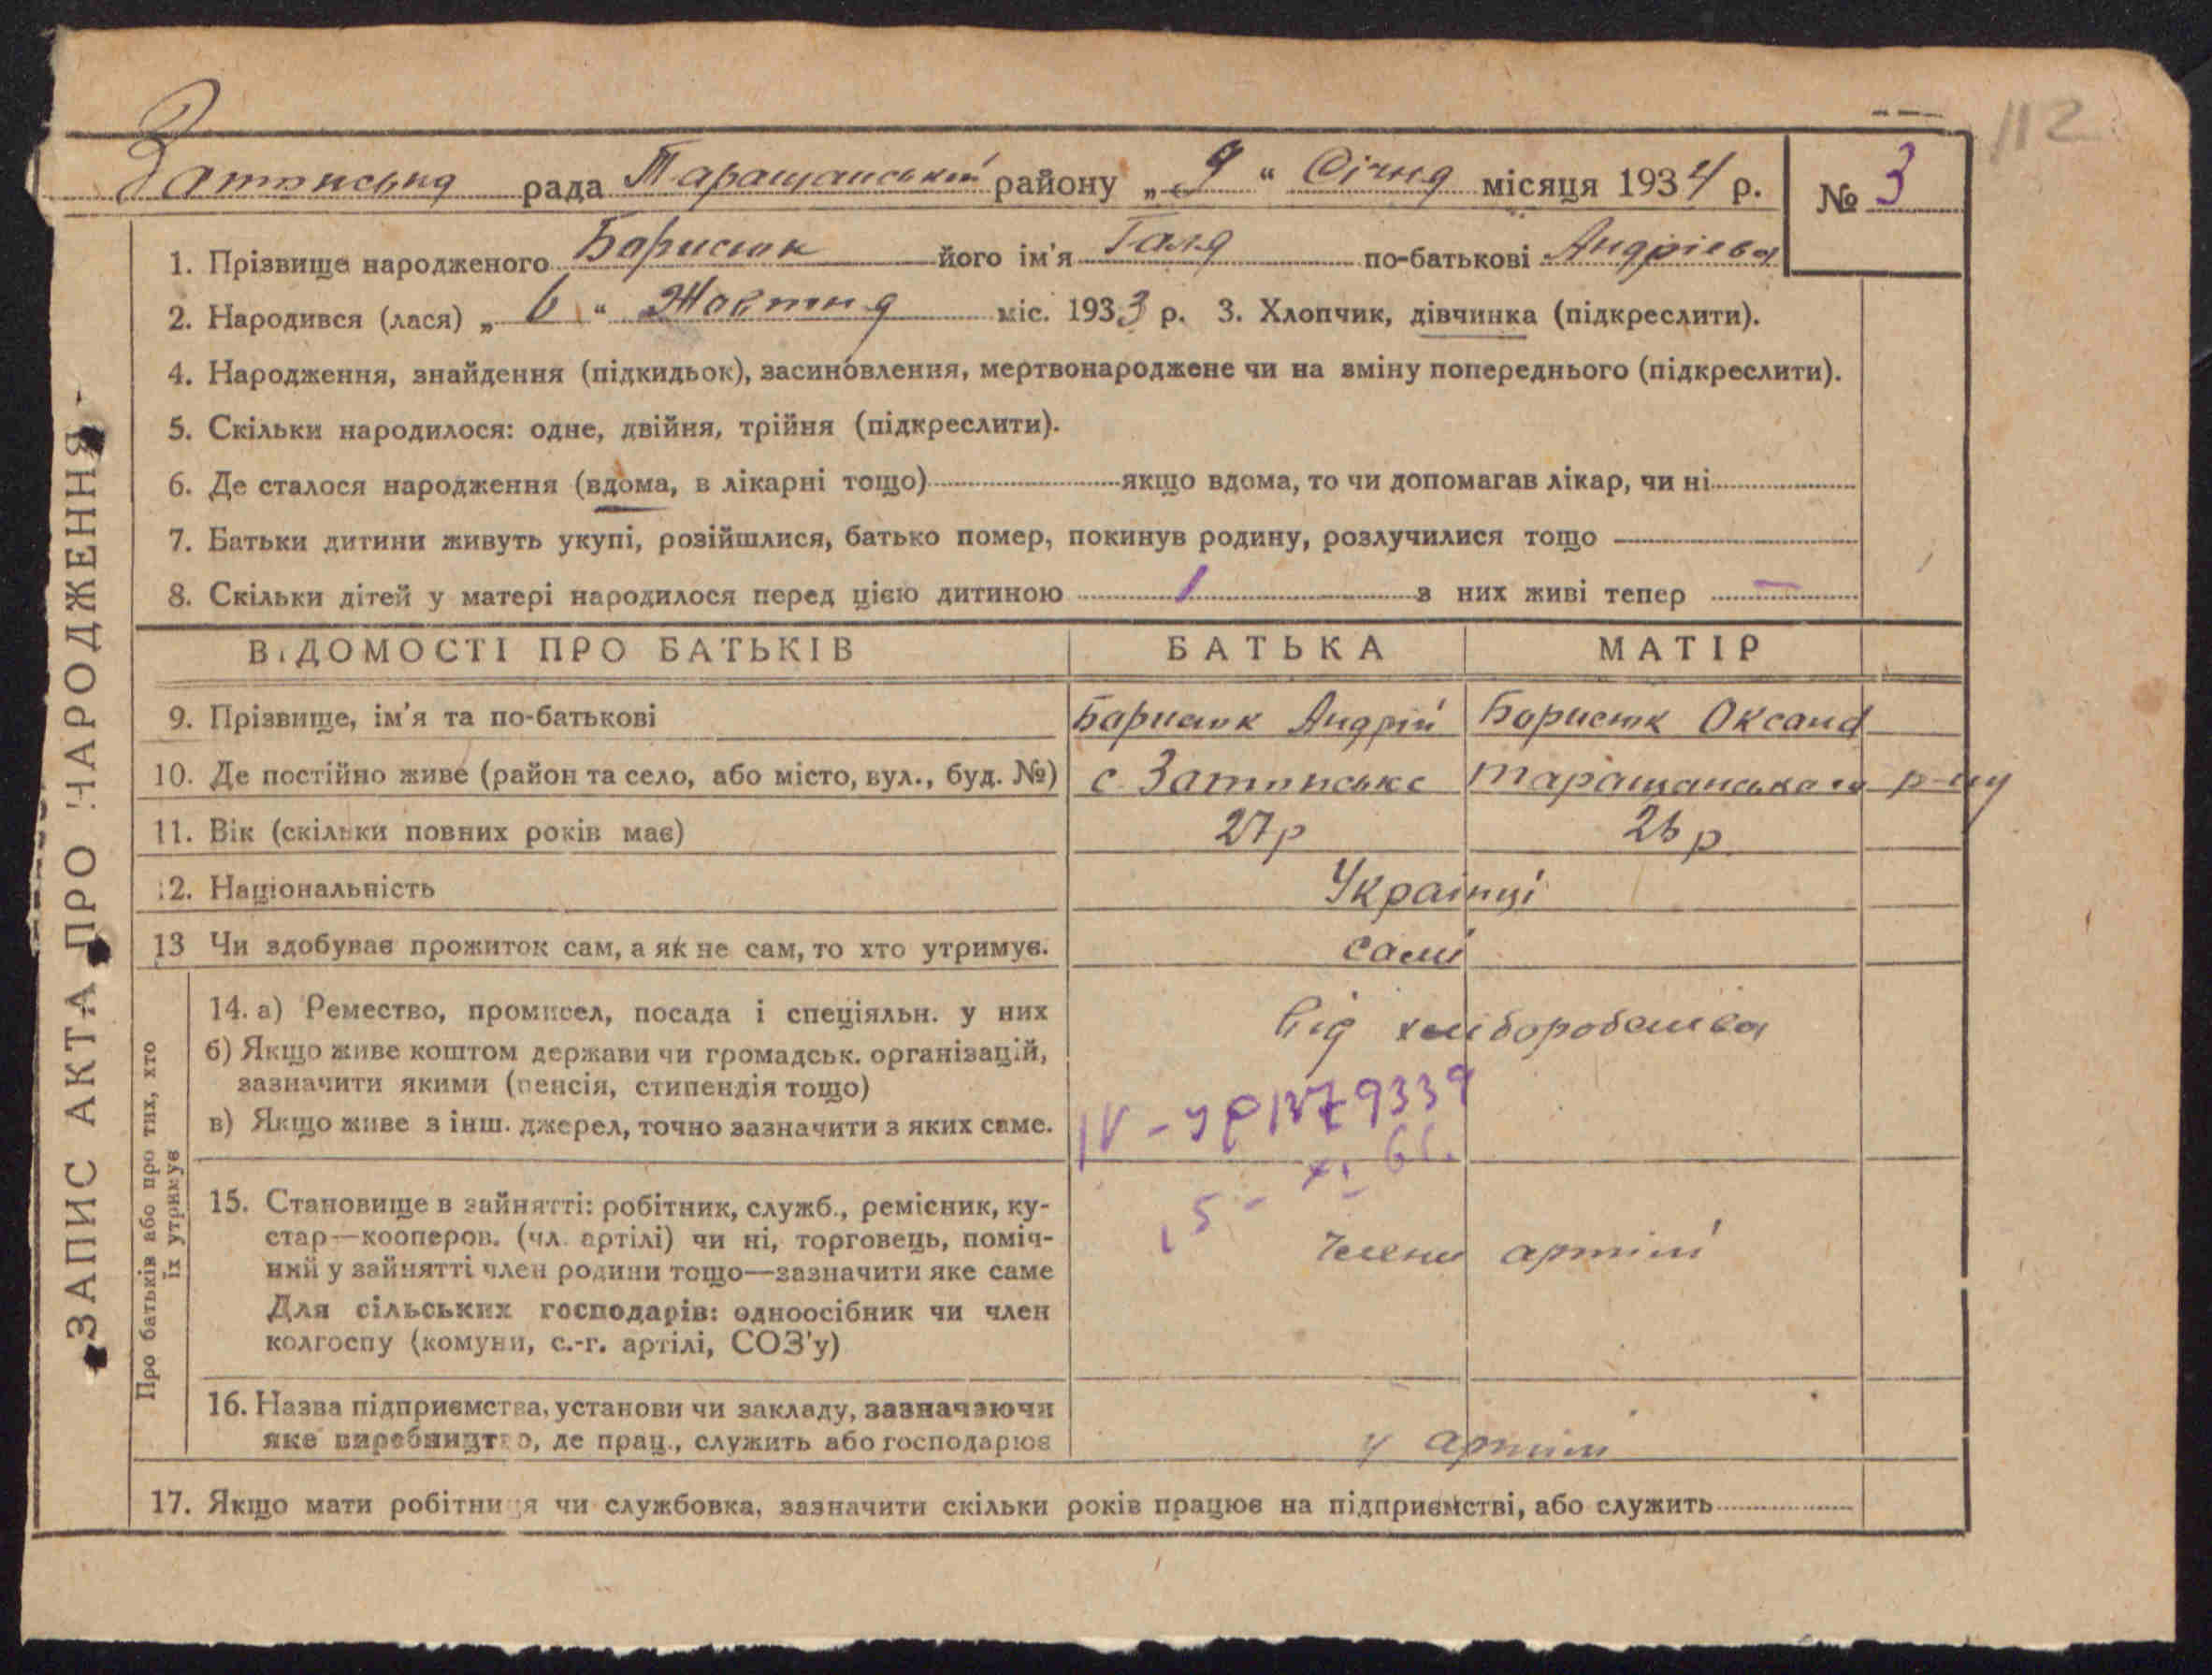 112
рада Таращанський району „ 9 “ Січня місяця 1934 р. № 3
1. Прізвище народженого Борисюк його ім'я Галя по-батькові Андрієва
2. Народився (лася) „ 6 “ Жовтня міс. 1933 р. 3. Хлопчик, дівчинка (підкреслити).
4. Народження, знайдення (підкидьок), засиновлення, мертвонароджене чи на зміну попереднього (підкреслити).
5. Скільки народилося: одне, двійня, трійня (підкреслити).
6. Де сталося народження (вдома, в лікарні тощо) якщо вдома, то чи допомагав лікар, чи ні
7. Батьки дитини живуть укупі, розійшлися, батько помер, покинув родину, розлучилися тощо
8. Скільки дітей у матері народилося перед цією дитиною 1 з них живі тепер —
ВІДОМОСТІ ПРО БАТЬКІВ БАТЬКА МАТІР
9. Прізвище, ім'я та по-батькові Борисюк Андрій Борисюк Оксана
10. Де постійно живе (район та село, або місто, вул., буд. №) с. Таращанського р-ну
11. Вік (скільки повних років має) 27 р 26 р
12. Національність Українці
13 Чи здобуває прожиток сам, а як не сам, то хто утримує. самі
14. а) Ремество, промисел, посада і спеціяльн. у них Від хліборобства
б) Якщо живе коштом держави чи громадськ. організацій,
зазначити якими (пенсія, стипендія тощо)
в) Якщо живе з інш. джерел, точно зазначити з яких саме.
15. Становище в зайнятті: робітник, служб., ремісник, ку-
стар—кооперов. (чл. артілі) чи ні, торговець, поміч-
ний у зайнятті член родини тощо—зазначити яке саме Члени артілі
Для сільських господарів: одноосібник чи член
колгоспу (комуни, с.-г. артілі, СОЗ'у)
16. Назва підприємства, установи чи закладу, зазначаючи
яке виробництво, де прац., служить або господарює у артілі
17. Якщо мати робітниця чи службовка, зазначити скільки років працює на підприємстві, або служить
ЗАПИС АКТА ПРО НАРОДЖЕННЯ
Про батьків або про тих, хто
їх утримує